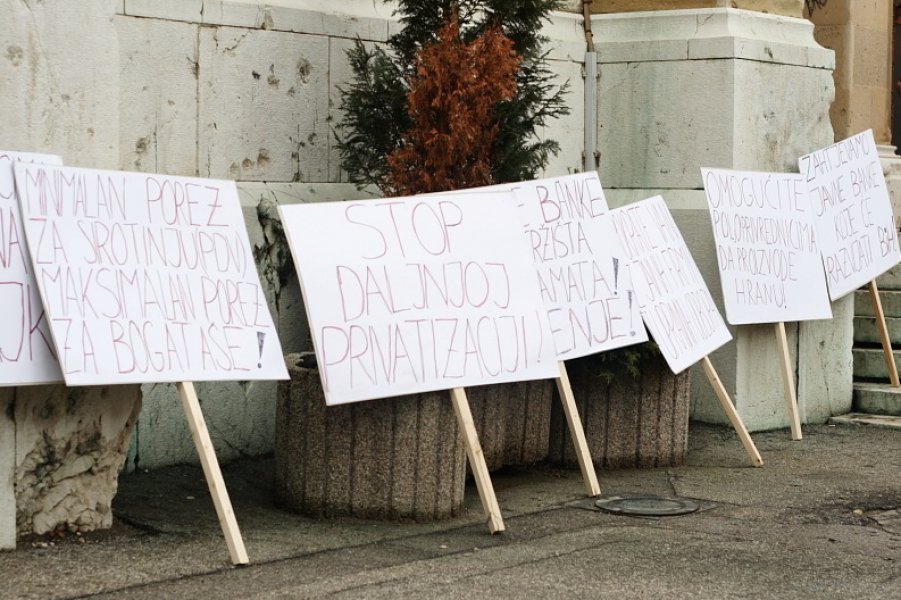 MINIMALAN POREZ
ZA SIROTINJU
MAKSIMALAN POREZ
ZA BOGATAŠE!
STOP
DALJNJOJ
PRIVATIZACIJI!
BANKE
RŽIŠTA
AMATA
ENJE!
OMOGUĆITE
POLJOPRIVREDNICIMA
DA PROIZVODE
HRANU!
ZAHTJEVAMO
JAVNE BANKE
KOJE ĆE
RAZVIJATI BiH